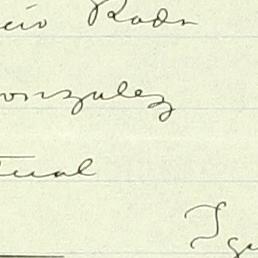 cio Rodr
onzalez
tual
Igu